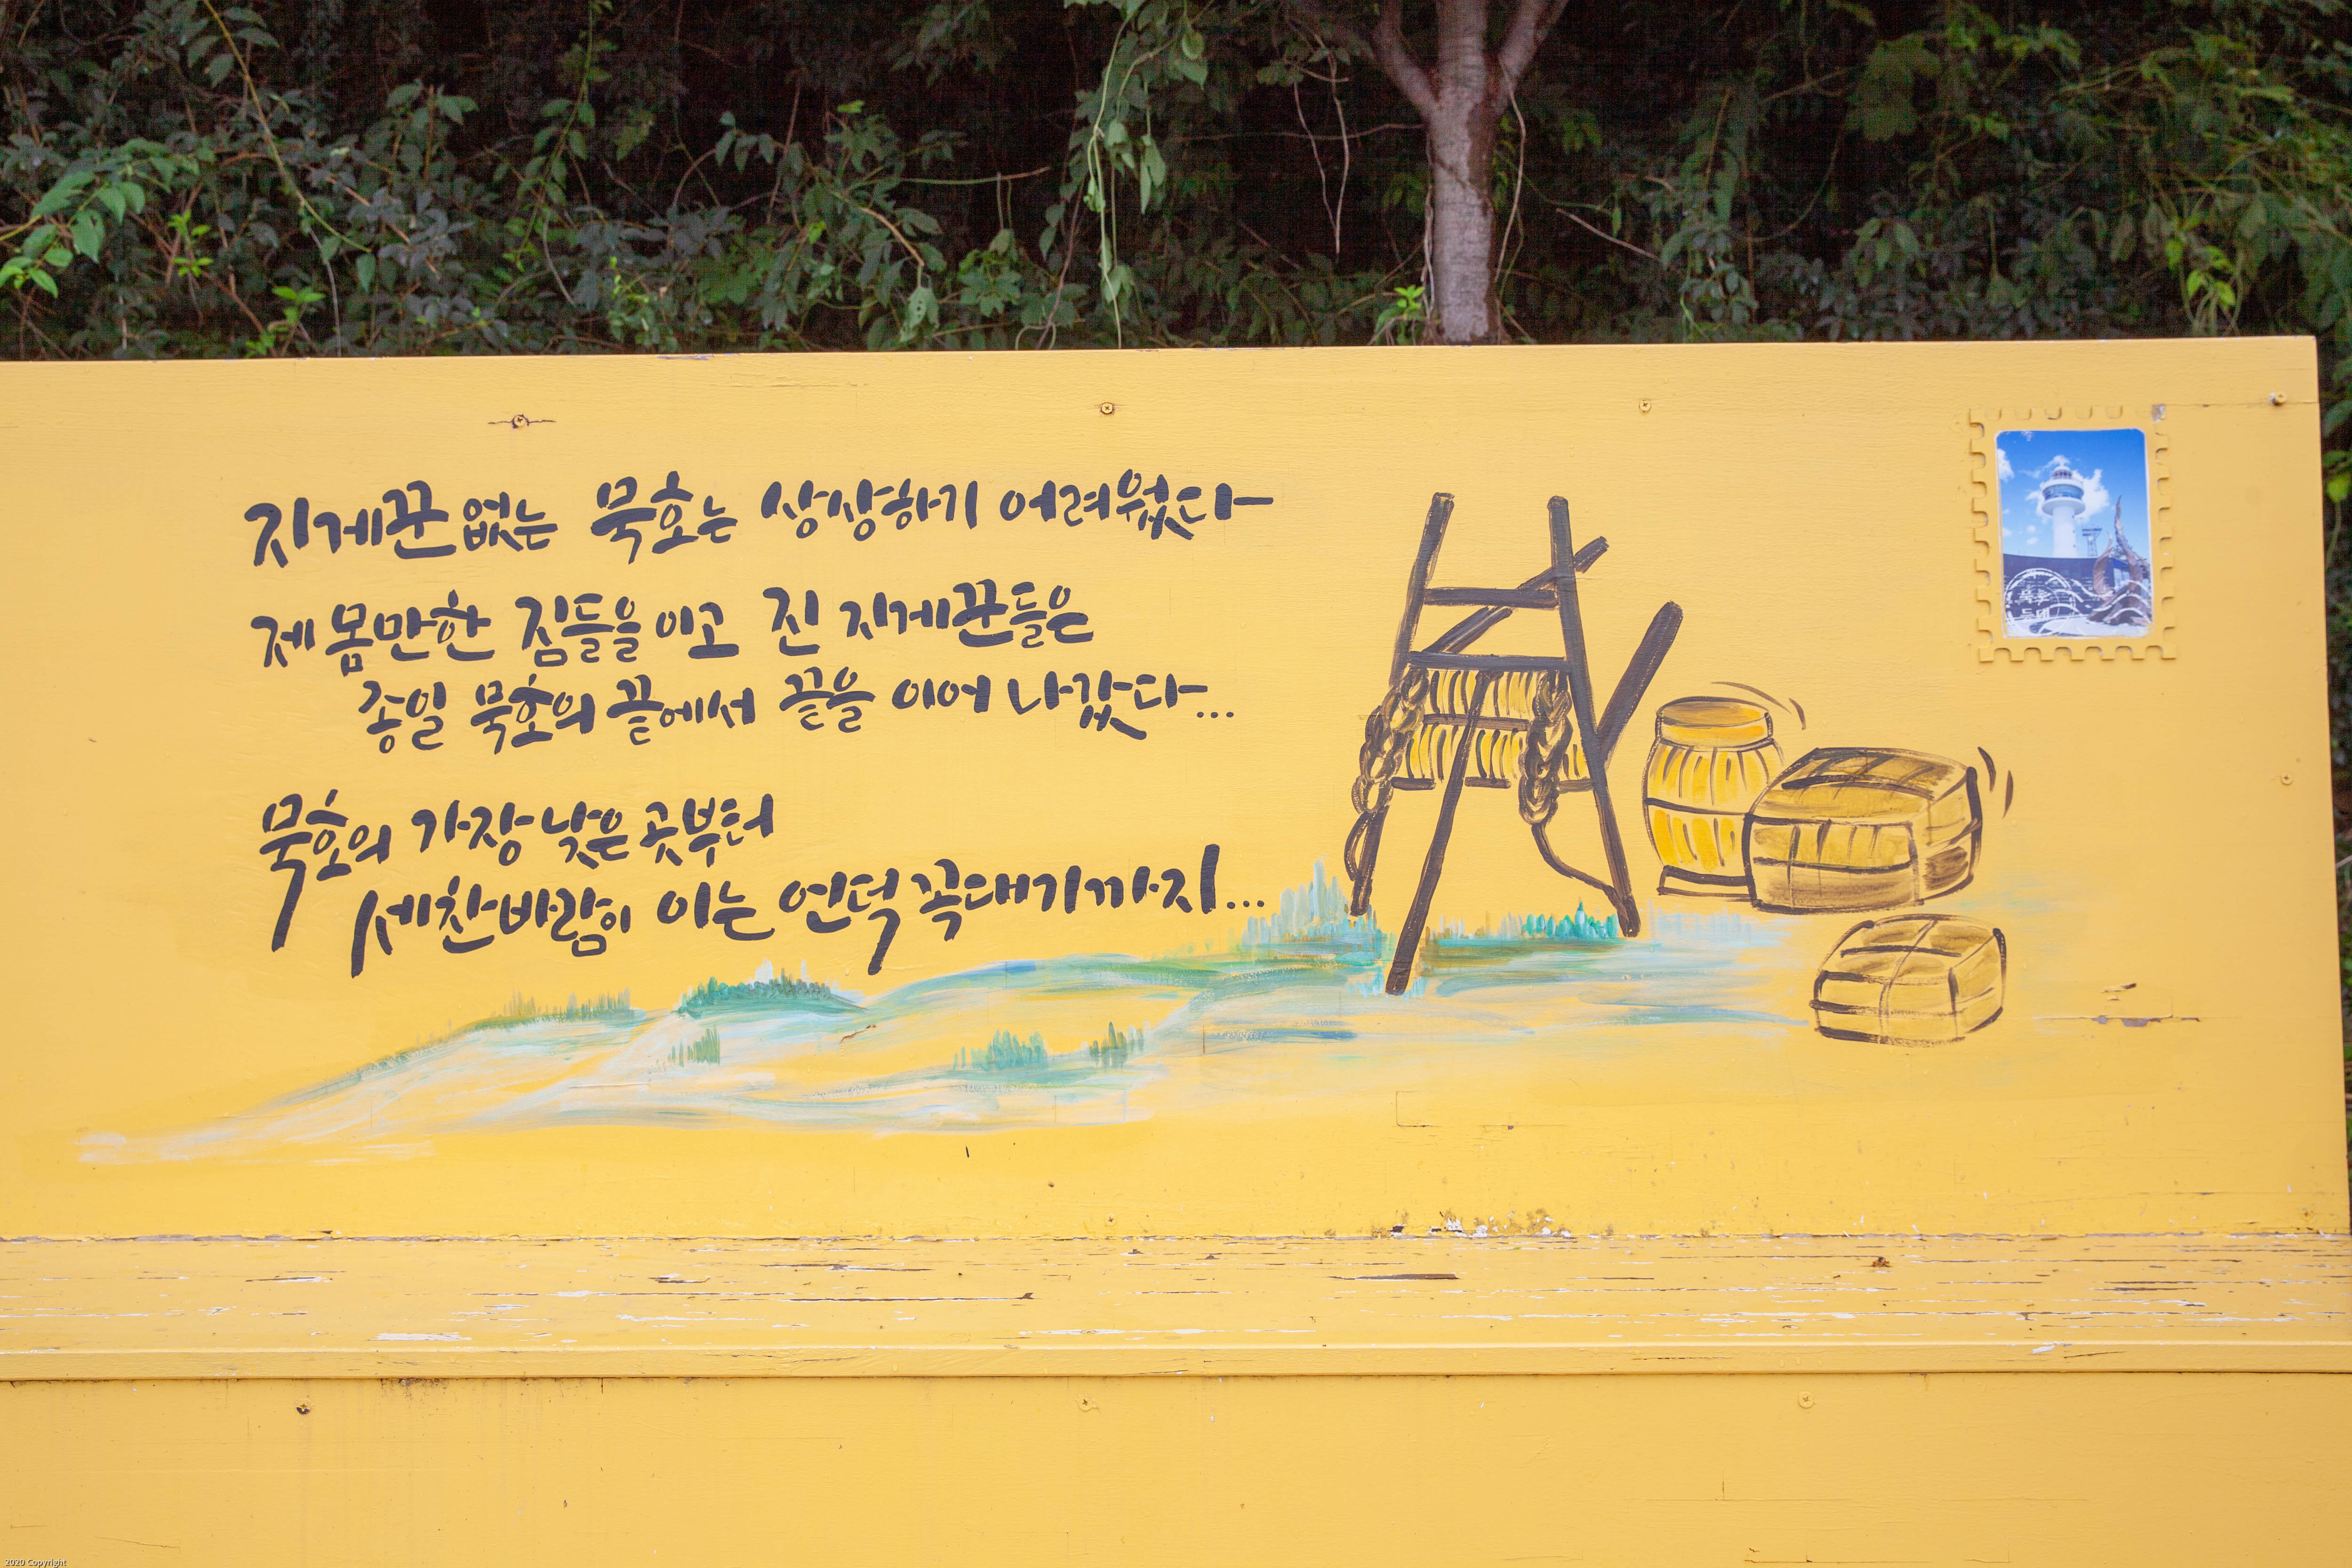 지게꾼 없는 묵호는 상상하기 어려웠다
제 몸만한 짐들을 이고 진 지게꾼들은
종일 묵호의 끝에서 끝을 이어 나갔다...
묵호의 가장 낮은 곳부터
세찬바람이 이는 언덕 꼭대기까지...
묵호
등대
2020 Copyright